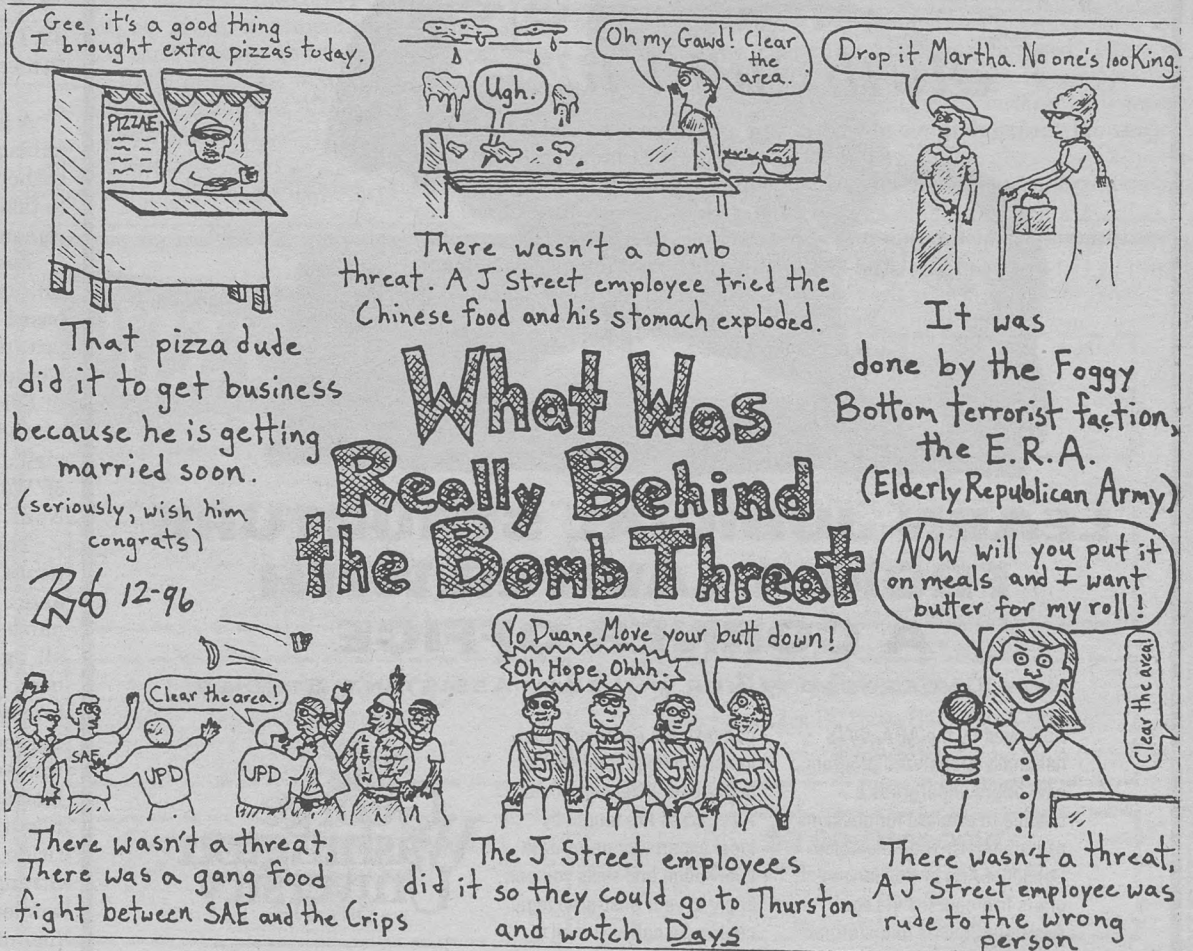 Gee, it's a good thing
I brought extra pizzas today.
PIZZAE
That pizza dude
did it to get business
because he is getting
married soon.
(seriously, wish him
congrats)
Rob 12-96
Ugh.
Oh my Gawd! Clear
the
area.
There wasn't a bomb
threat. A J Street employee tried the
Chinese food and his stomach exploded.
Drop it Martha. No one's looking.
It was
done by the Foggy
Bottom terrorist faction,
the E.R.A.
(Elderly Republican Army)
What Was
Really Behind
the Bomb Threat
Clear the area!
SAE
UPD
UPD
There wasn't a threat,
There was a gang food
fight between SAE and the Crips
Yo Duane, Move your butt down!
Oh Hope, Ohhh.
J
J
J
J
The J Street employees
did it so they could go to Thurston
and watch Days
NOW will you put it
on meals and I want
butter for my roll!
Clear the area!
There wasn't a threat,
A J Street employee was
rude to the wrong
person